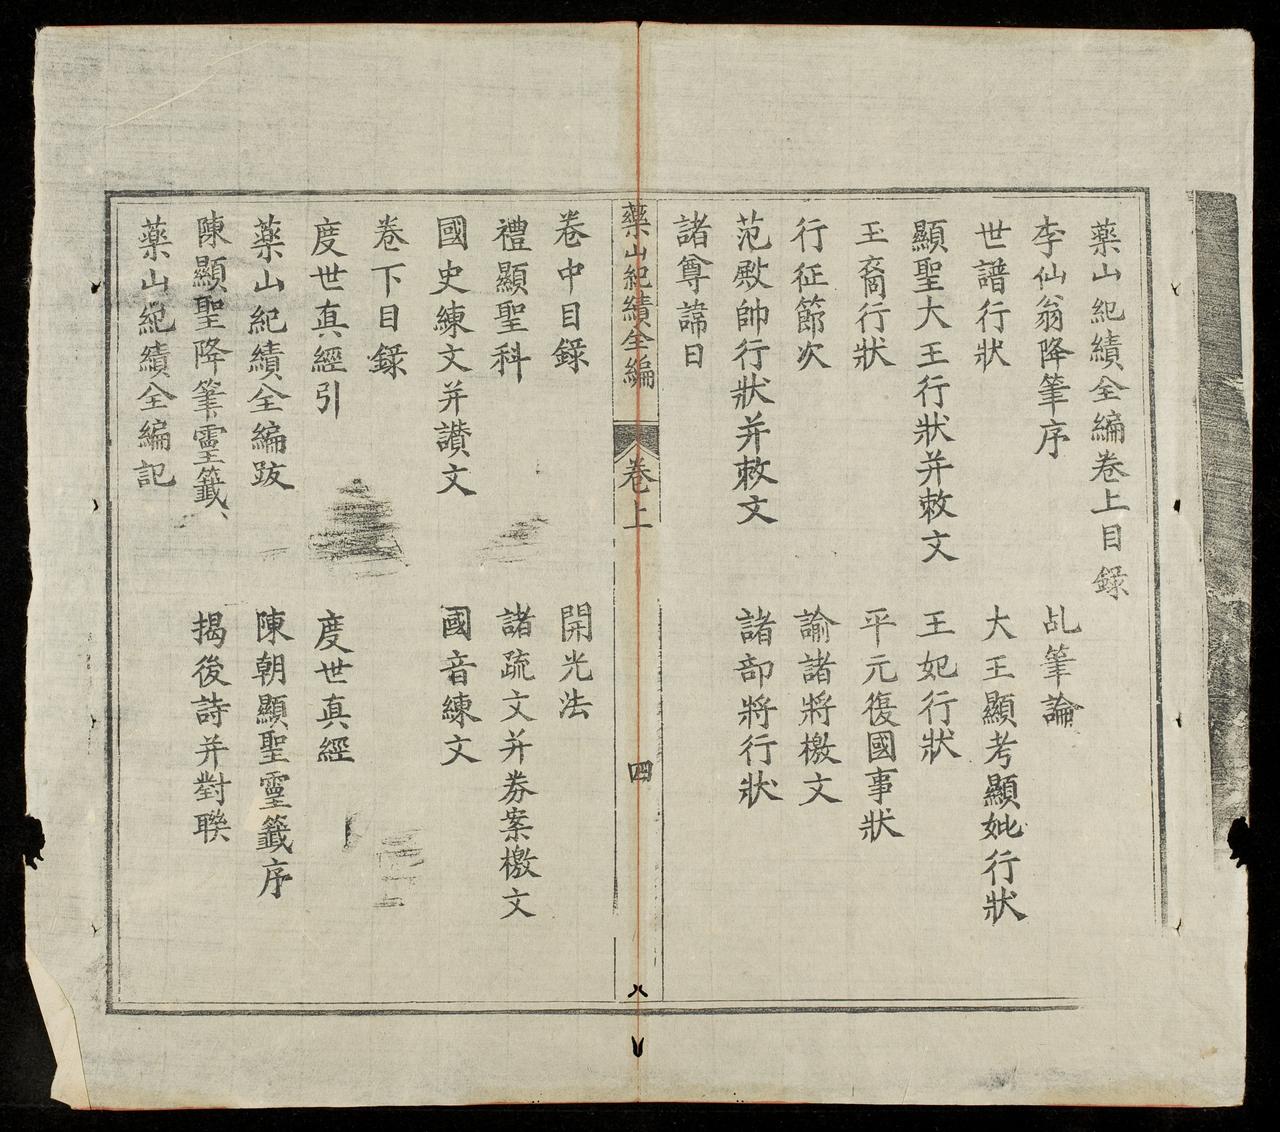 藥山紀績全編卷上目錄
李仙翁降筆序 乩筆論
世譜行狀 大王顯考顯妣行狀
顯聖大王行狀并敕文 王妃行狀
玉裔行狀 平元復國事狀
行征節次 諭諸將檄文
范殿帥行狀并敕文 諸部將行狀
諸尊諱日
藥山紀績全編 卷上 四 八
卷中目錄 開光法
禮顯聖科 諸疏文并券案檄文
國史練文并讃文 國音練文
卷下目錄
度世真經引 度世真經
藥山紀績全編跋 陳朝顯聖靈籤序
陳顯聖降筆靈籤 揭後詩并對聯
藥山紀績全編記